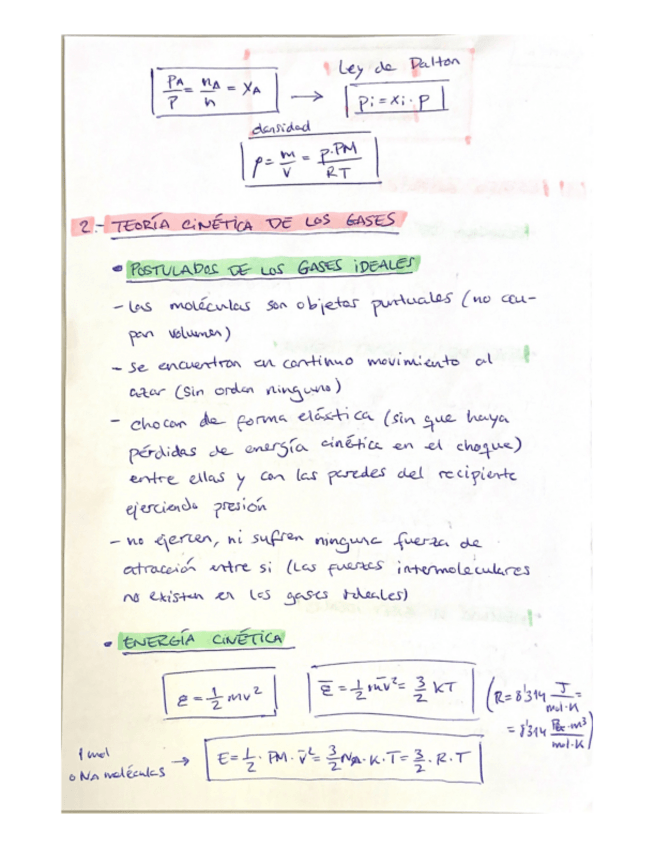 Ley de Dalton
PA/P = nA/n = XA → Pi = Xi · P
densidad
ρ = m/V = P·PM/RT
2.- TEORÍA CINÉTICA DE LOS GASES
• POSTULADOS DE LOS GASES IDEALES
- Las moléculas son objetos puntuales (no ocu-
pan volumen)
- Se encuentran en continuo movimiento al
azar (sin orden ninguno)
- chocan de forma elástica (sin que haya
pérdidas de energía cinética en el choque)
entre ellas y con las paredes del recipiente
ejerciendo presión
- no ejercen, ni sufren ninguna fuerza de
atracción entre si (las fuerzas intermoleculares
no existen en los gases ideales)
• ENERGÍA CINÉTICA
ε = 1/2 mv² ε̄ = 1/2 mv̄² = 3/2 KT (R = 8'314 J/mol·K =
= 8'314 Pa·m³/mol·K)
1 mol
o NA moléculas → E = 1/2 · PM · v̄² = 3/2 NA · K · T = 3/2 · R · T